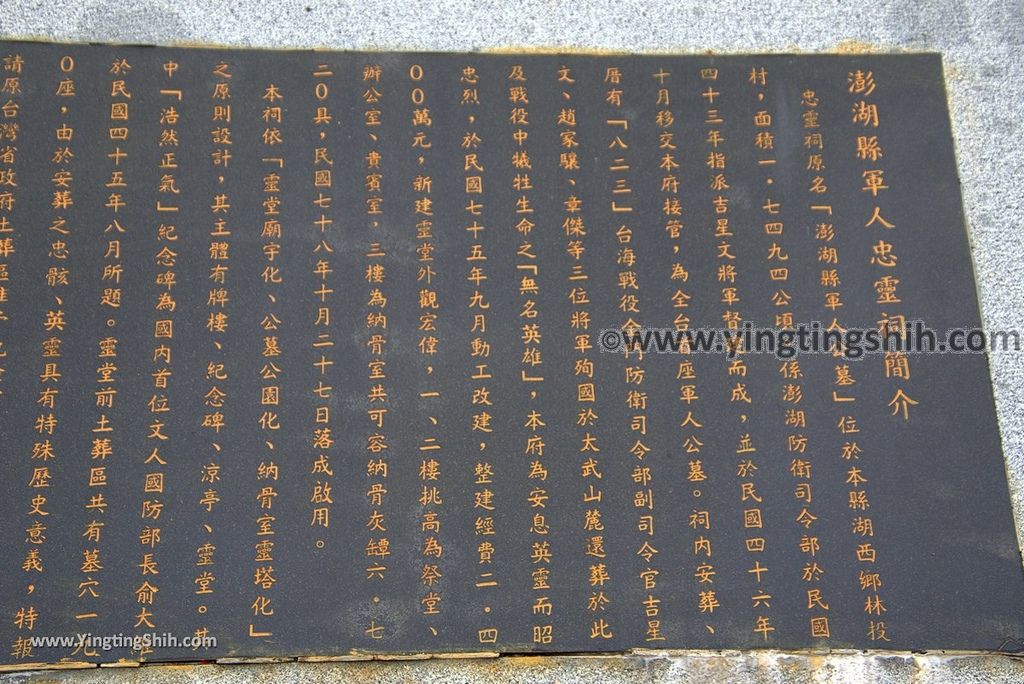 澎湖縣軍人忠靈祠簡介
忠靈祠原名「澎湖縣軍人公墓」位於本縣湖西鄉林投
村，面積一．七四九四公頃，係澎湖防衛司令部於民國
四十三年指派吉星文將軍督建而成，並於民國四十六年
十月移交本府接管，為全台首座軍人公墓。祠內安葬、
厝有「八二三」台海戰役金門防衛司令部副司令官吉星
文、趙家驤、章傑等三位將軍殉國於太武山麓還葬於此
及戰役中犧牲生命之「無名英雄」，本府為安息英靈而昭
忠烈，於民國七十五年九月動工改建，整建經費二．四
00萬元，新建靈堂外觀宏偉，一、二樓挑高為祭堂、
辦公室、貴賓室，三樓為納骨室共可容納骨灰罈六．七
二0具，民國七十八年十月二十七日落成啟用。
本祠依「靈堂廟宇化、公墓公園化、納骨室靈塔化」
之原則設計，其主體有牌樓、紀念碑、涼亭、靈堂。其
中「浩然正氣」紀念碑為國內首位文人國防部長俞大維
於民國四十五年八月所題。靈堂前土葬區共有墓穴一九
0座，由於安葬之忠骸、英靈具有特殊歷史意義，特報
請原台灣省政府土葬區
©www.yingtingshih.com
www.YingtingShih.com